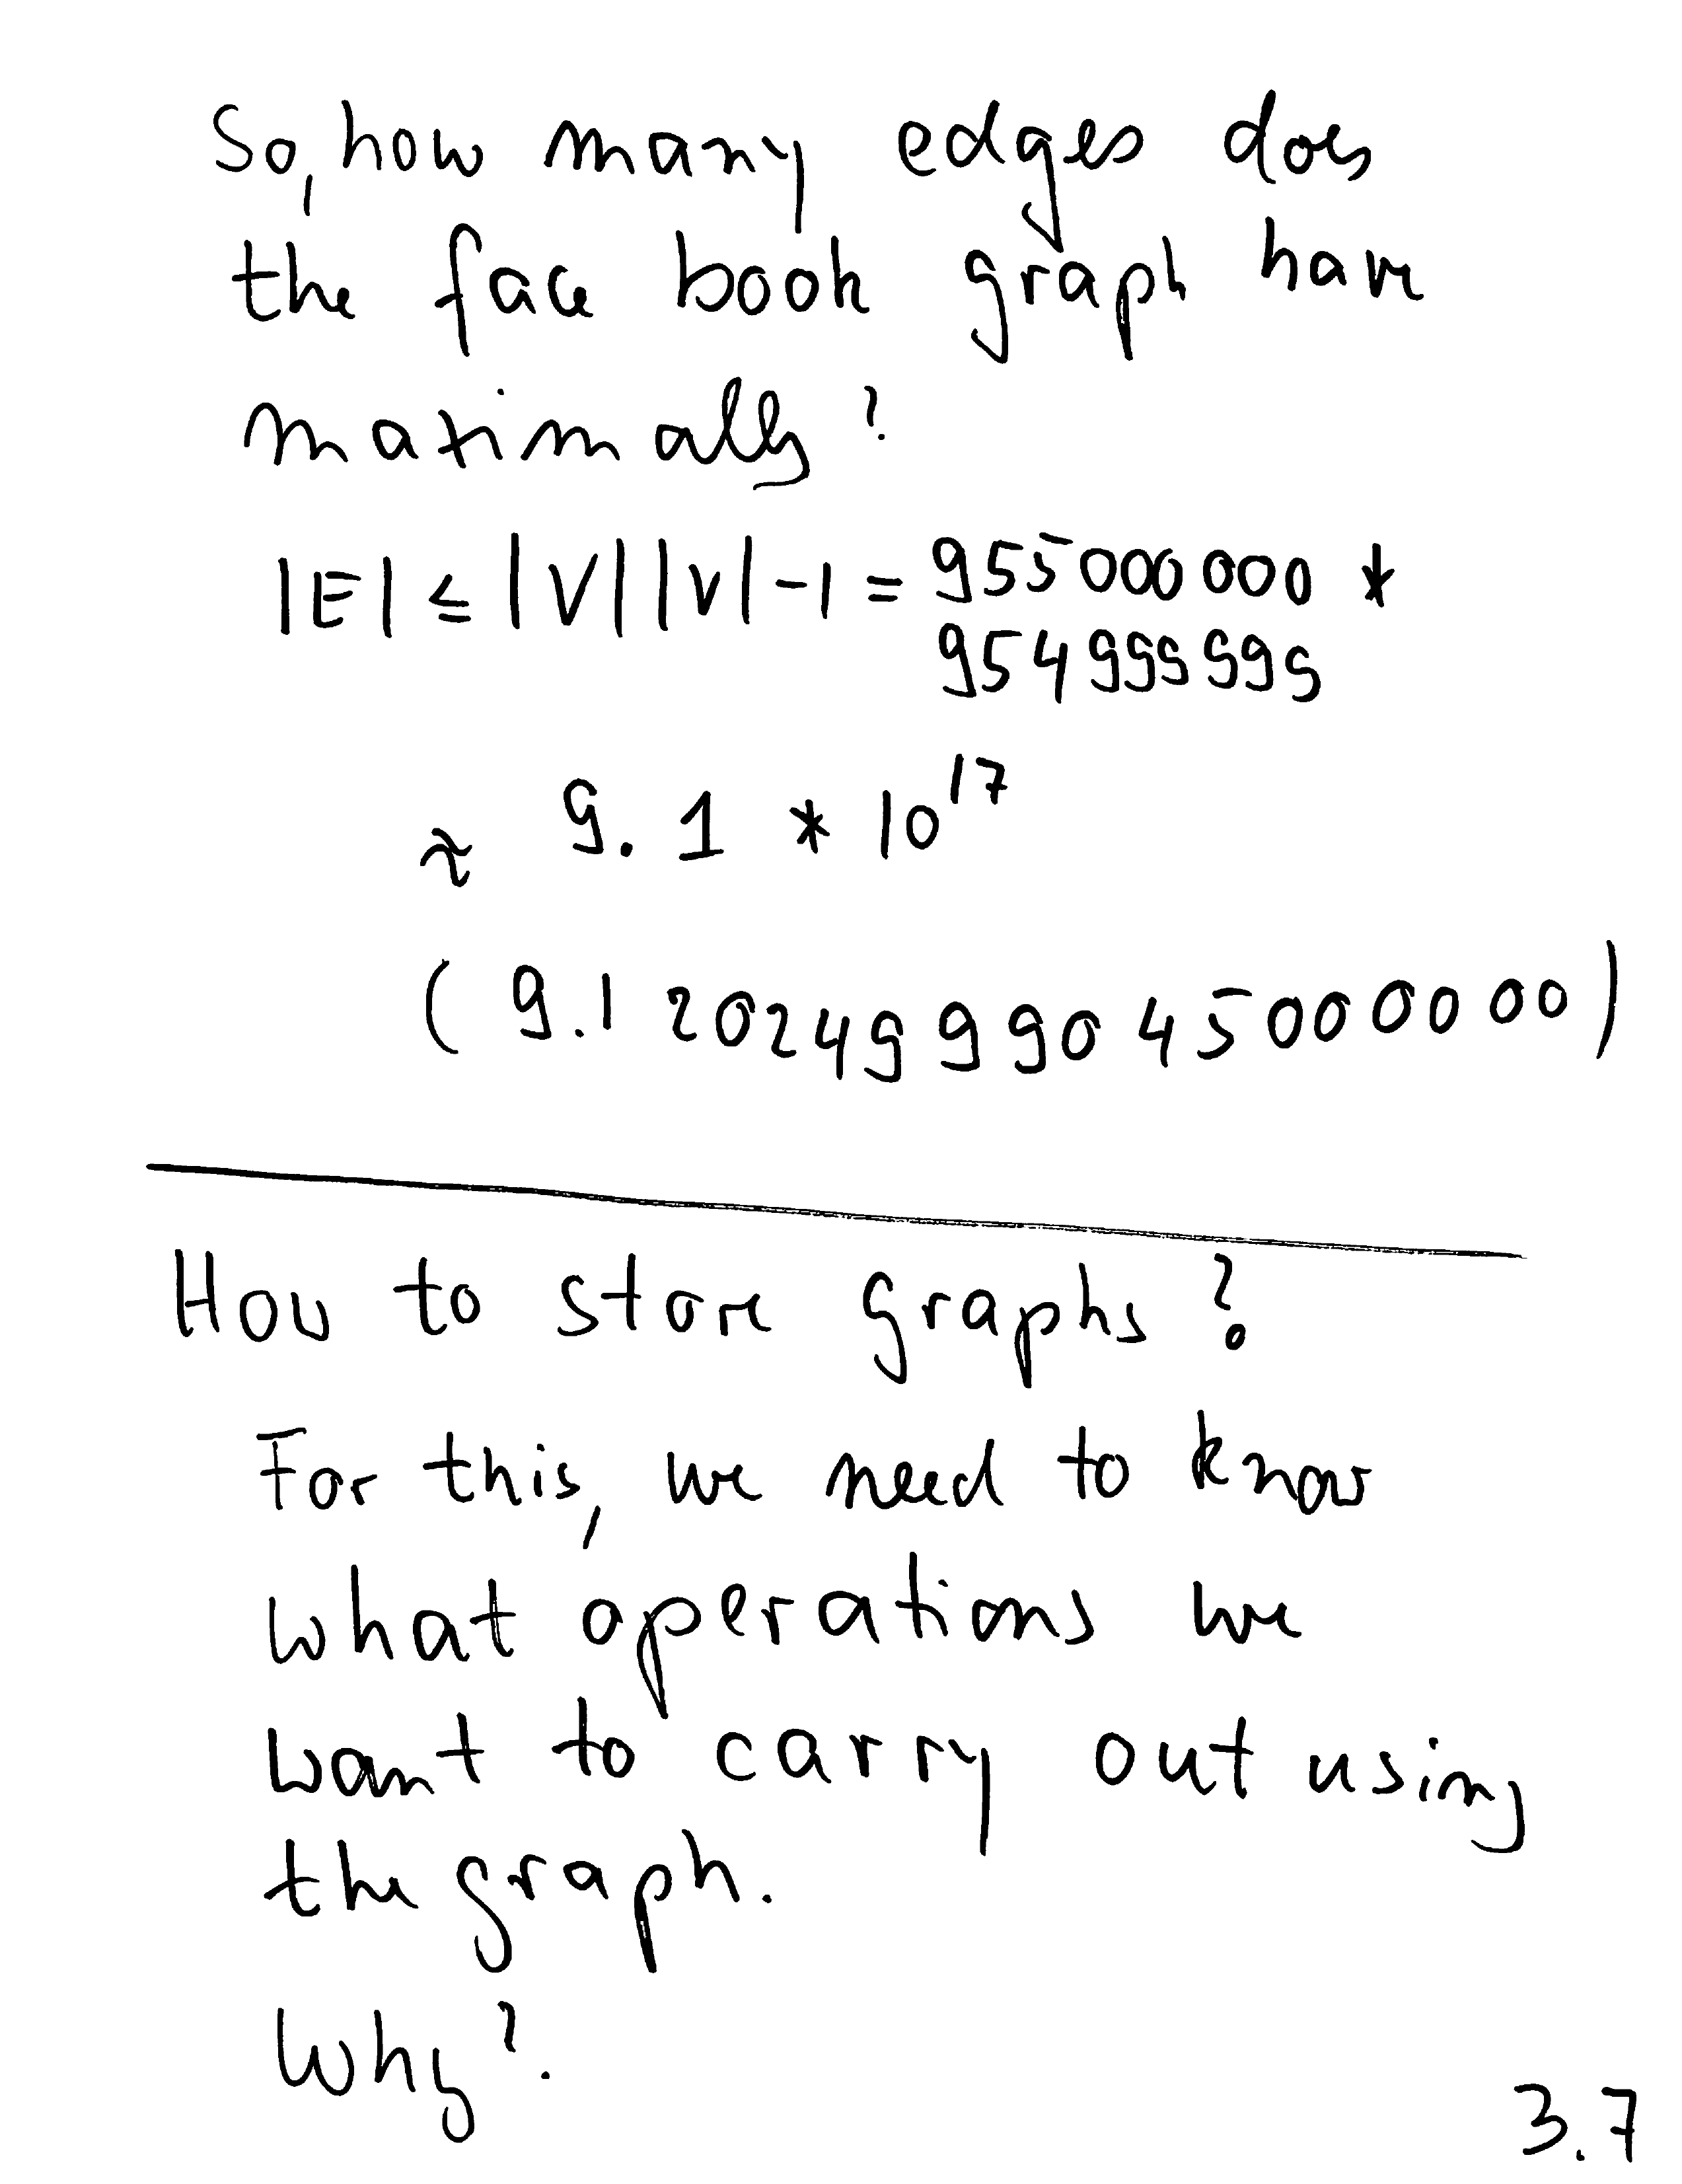 So, how many edges does
the face book graph have
maximally?
|E| ≤ |V||V|-1 = 955000000 *
954999999
≈ 9.1 * 10^17
(9.12024999045000000)
How to store graphs?
For this, we need to know
what operations we
want to carry out using
the graph.
Why?
3.7